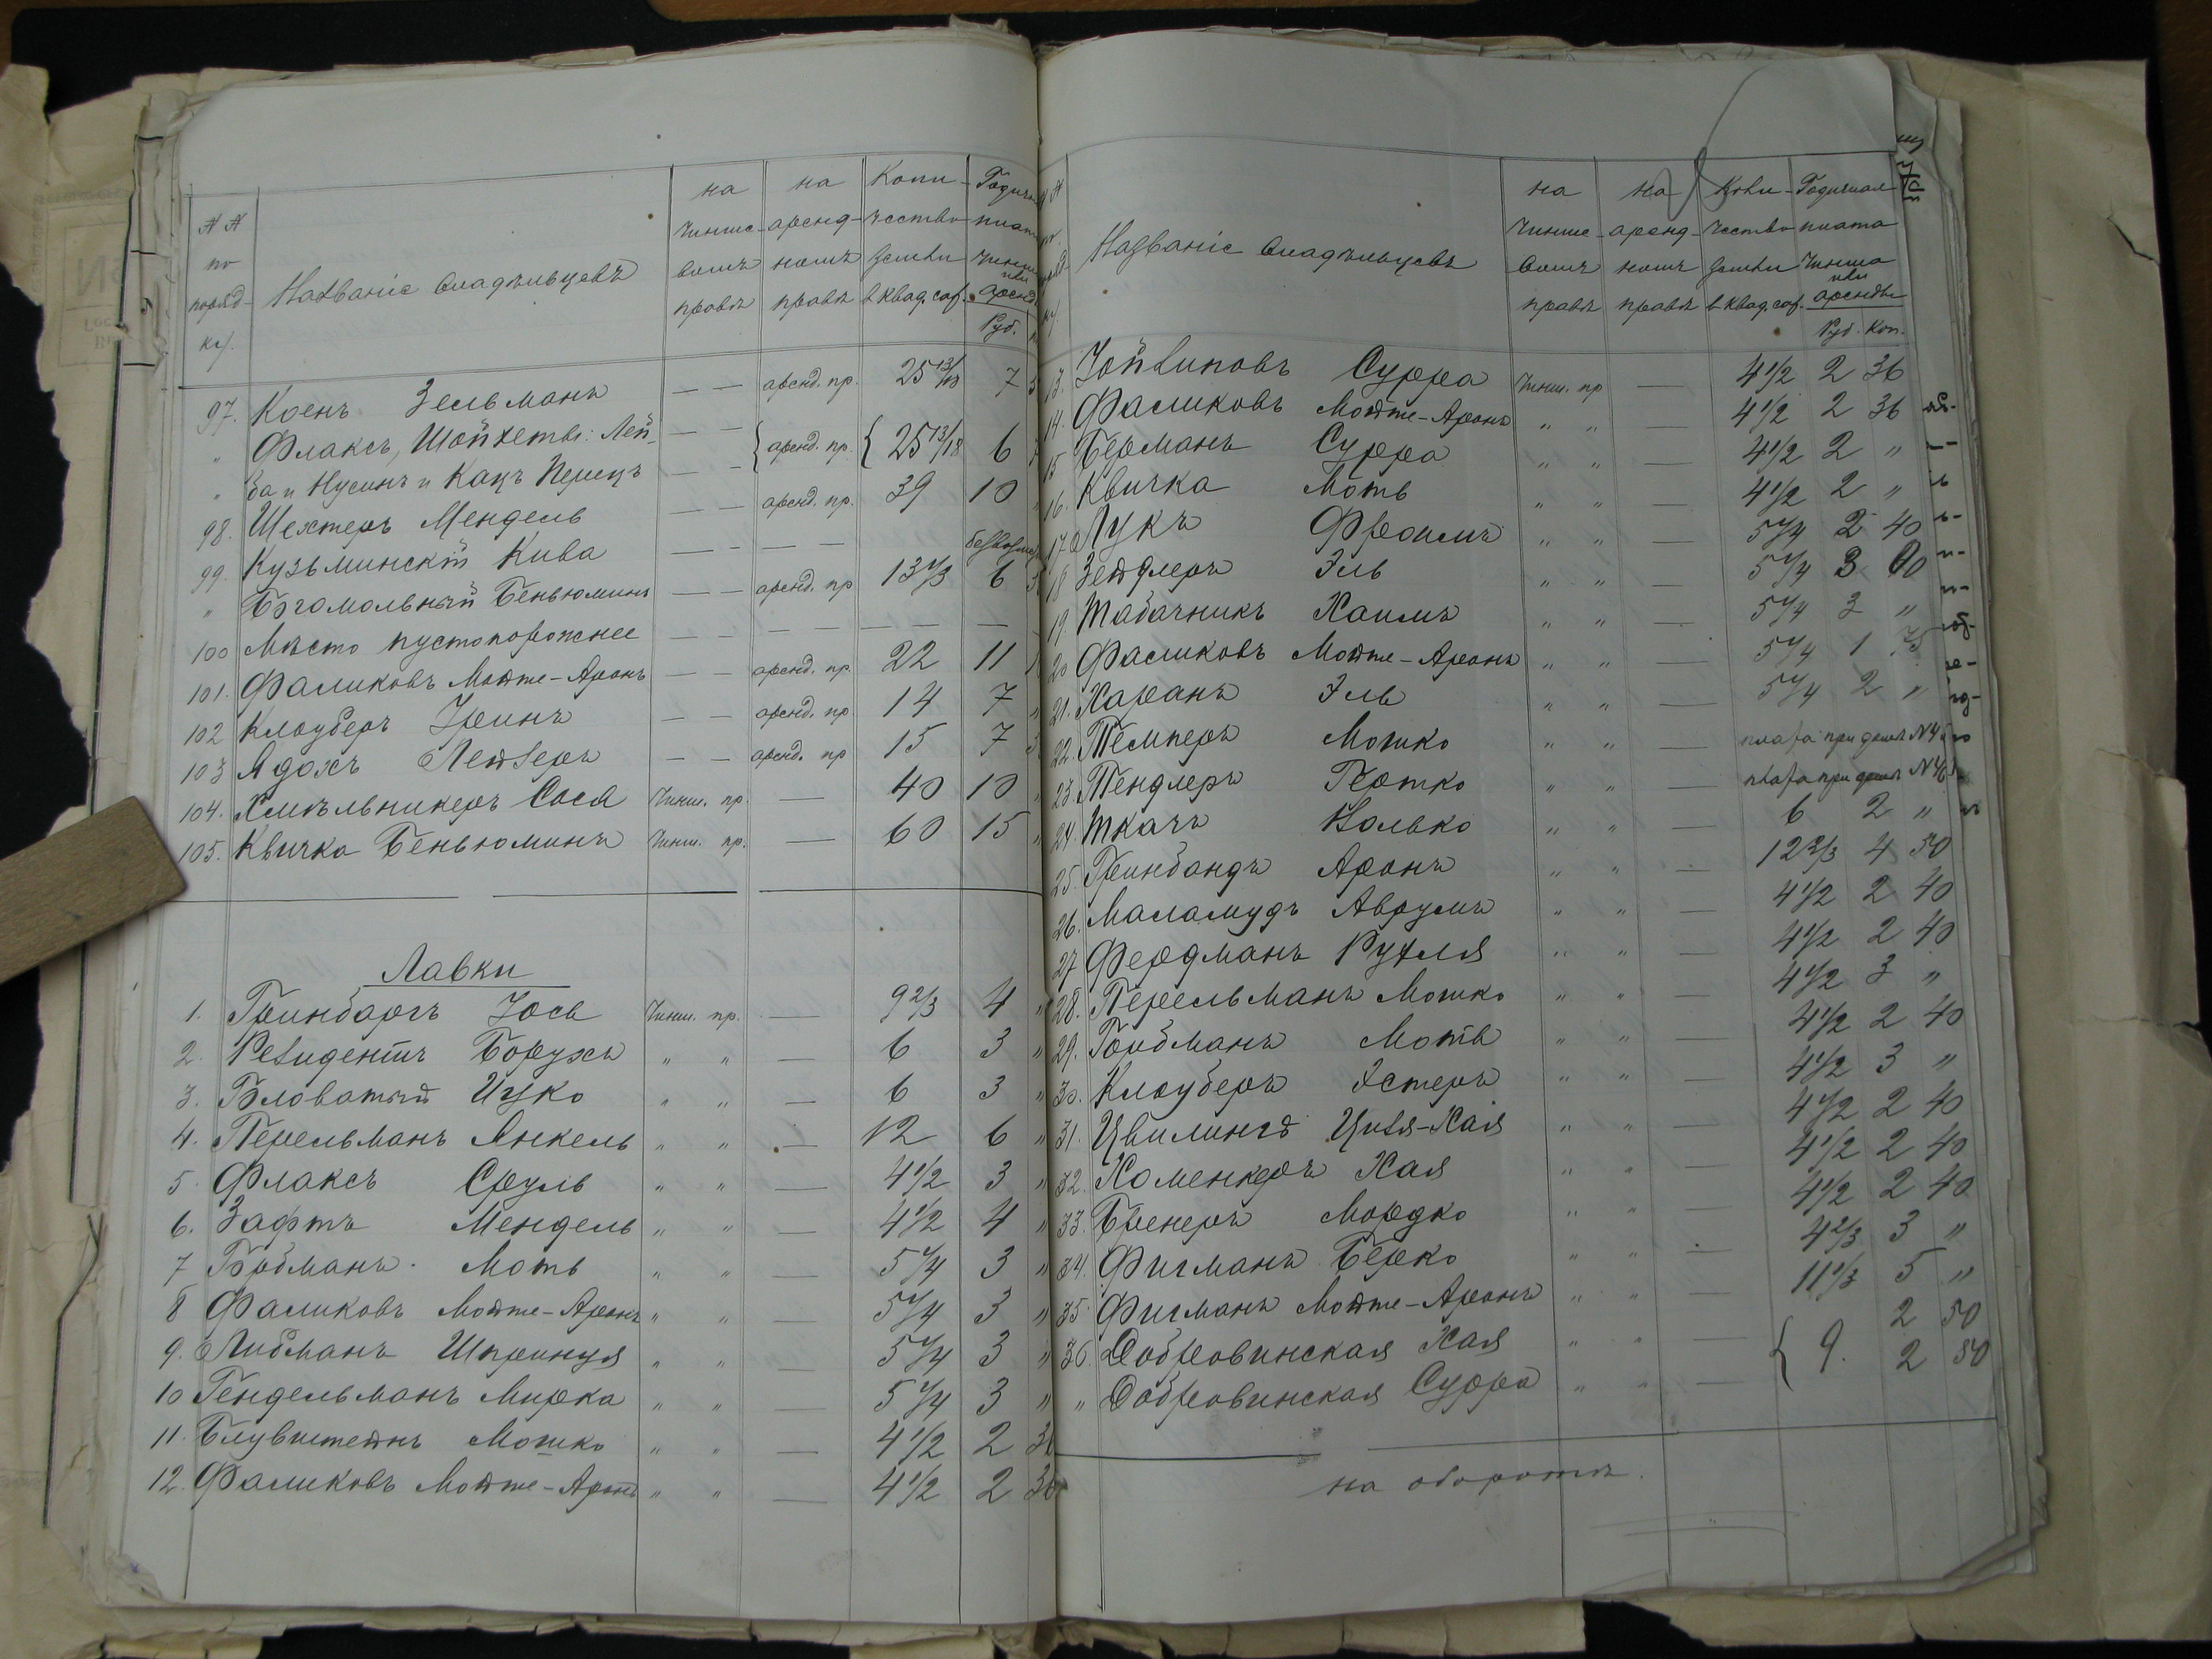 №№ по поряд-ку.
Названіе владѣльцевъ
на чинше-вомъ правѣ
на аренд-номъ правѣ
Коли-чество земли в квад. саж.
чинша или аренд.
Руб.
97. Коенъ Зельманъ — — аренд. пр. 25 13/18 7
" Флаксъ, Шойхетвъ: Лей- — —
" ба и Нусинъ и Кацъ Перецъ — — { аренд. пр. { 25 13/18 6
98. Шехтеръ Мендель — — аренд. пр. 39 10
99. Кузьминскій Кива — — —
" Богомольный Беньюминъ — — аренд. пр 13 1/3 6
100 Мѣсто пустопорожнее — — — — — — —
101. Фаликовъ Мойте-Аронъ — — аренд. пр. 22 11
102 Клоуберъ Уринъ — — аренд. пр 14 7 "
103 Ядохъ Лейзеръ — — аренд. пр 15 7
104. Хмѣльникеръ Сося Чинш. пр. — 40 10 "
105. Квичка Беньюминъ Чинш. пр. — 60 15 "
Лавки
1. Гринбаргъ Іось Чинш. пр. — 9 2/3 4 "
2. Резидентъ Борухъ " " — 6 3 "
3. Бловатый Ицко " " — 6 3 "
4. Перельманъ Янкель " " — 12 6 "
5. Флаксъ Сруль " " — 4 1/2 3 "
6. Зафтъ Мендель " " — 4 1/2 4 "
7 Гройманъ Моть " " — 5 1/4 3 "
8 Фаликовъ Мойте-Аронъ " " — 5 1/4 3 "
9. Либманъ Шпринця " " — 5 1/4 3 "
10 Гендельманъ Мирка " " — 5 1/4 3 "
11. Блувштейнъ Мошко " " — 4 1/2 2 36
12. Фаликовъ Мойте-Аронъ " " — 4 1/2 2 36
Названіе владѣльцевъ
на чинше-вомъ правѣ
на аренд-номъ правѣ
Коли-чество земли в квад. саж.
Годичная плата чинша или аренды
Руб. Коп.
13. Зойликовъ Сурра Чинш. пр — 4 1/2 2 36
14. Фаликовъ Мойте-Аронъ " " — 4 1/2 2 36
15 Берманъ Сурра " " — 4 1/2 2 "
16. Квичка Моть " " — 4 1/2 2 "
17 Лукъ Фроимъ " " — 5 1/4 2 40
18 Зейдлеръ Эль " " — 5 1/4 3 00
19. Табачникъ Хаимъ " " — 5 1/4 3 "
20 Фаликовъ Мойте-Аронъ " " — 5 1/4 1 75
21. Харанъ Эль " " — 5 1/4 2 "
22. Темперъ Мошко " " — плата при домѣ №
23. Тендлеръ Гершко " " — плата при домѣ №
24. ТкачъВолько " " — 6 2 "
25. Гринбандъ Аронъ " " — 12 2/3 4 50
26. Маламудъ Аврумъ " " — 4 1/2 2 40
27 Фердманъ Рухля " " — 4 1/2 2 40
28. Перельманъ Мошко " " — 4 1/2 3 "
29. Гройманъ Моть " " — 4 1/2 2 40
30. Клоуберъ Эстеръ " " — 4 1/2 3 "
31. Цвилингъ Цивя-Хая " " — 4 1/2 2 40
32. Каменкеръ Хая " " — 4 1/2 2 40
33. Бренеръ Мордко " " — 4 1/2 2 40
34. Фигманъ Берко " " — 4 2/3 3 "
35. Фигманъ Мойте-Аронъ " " — 11 1/3 5 "
36. Добровинская Хая " " — { 9. 2 50
" Добровинская Сурра " " — 2 50
на оборотѣ.